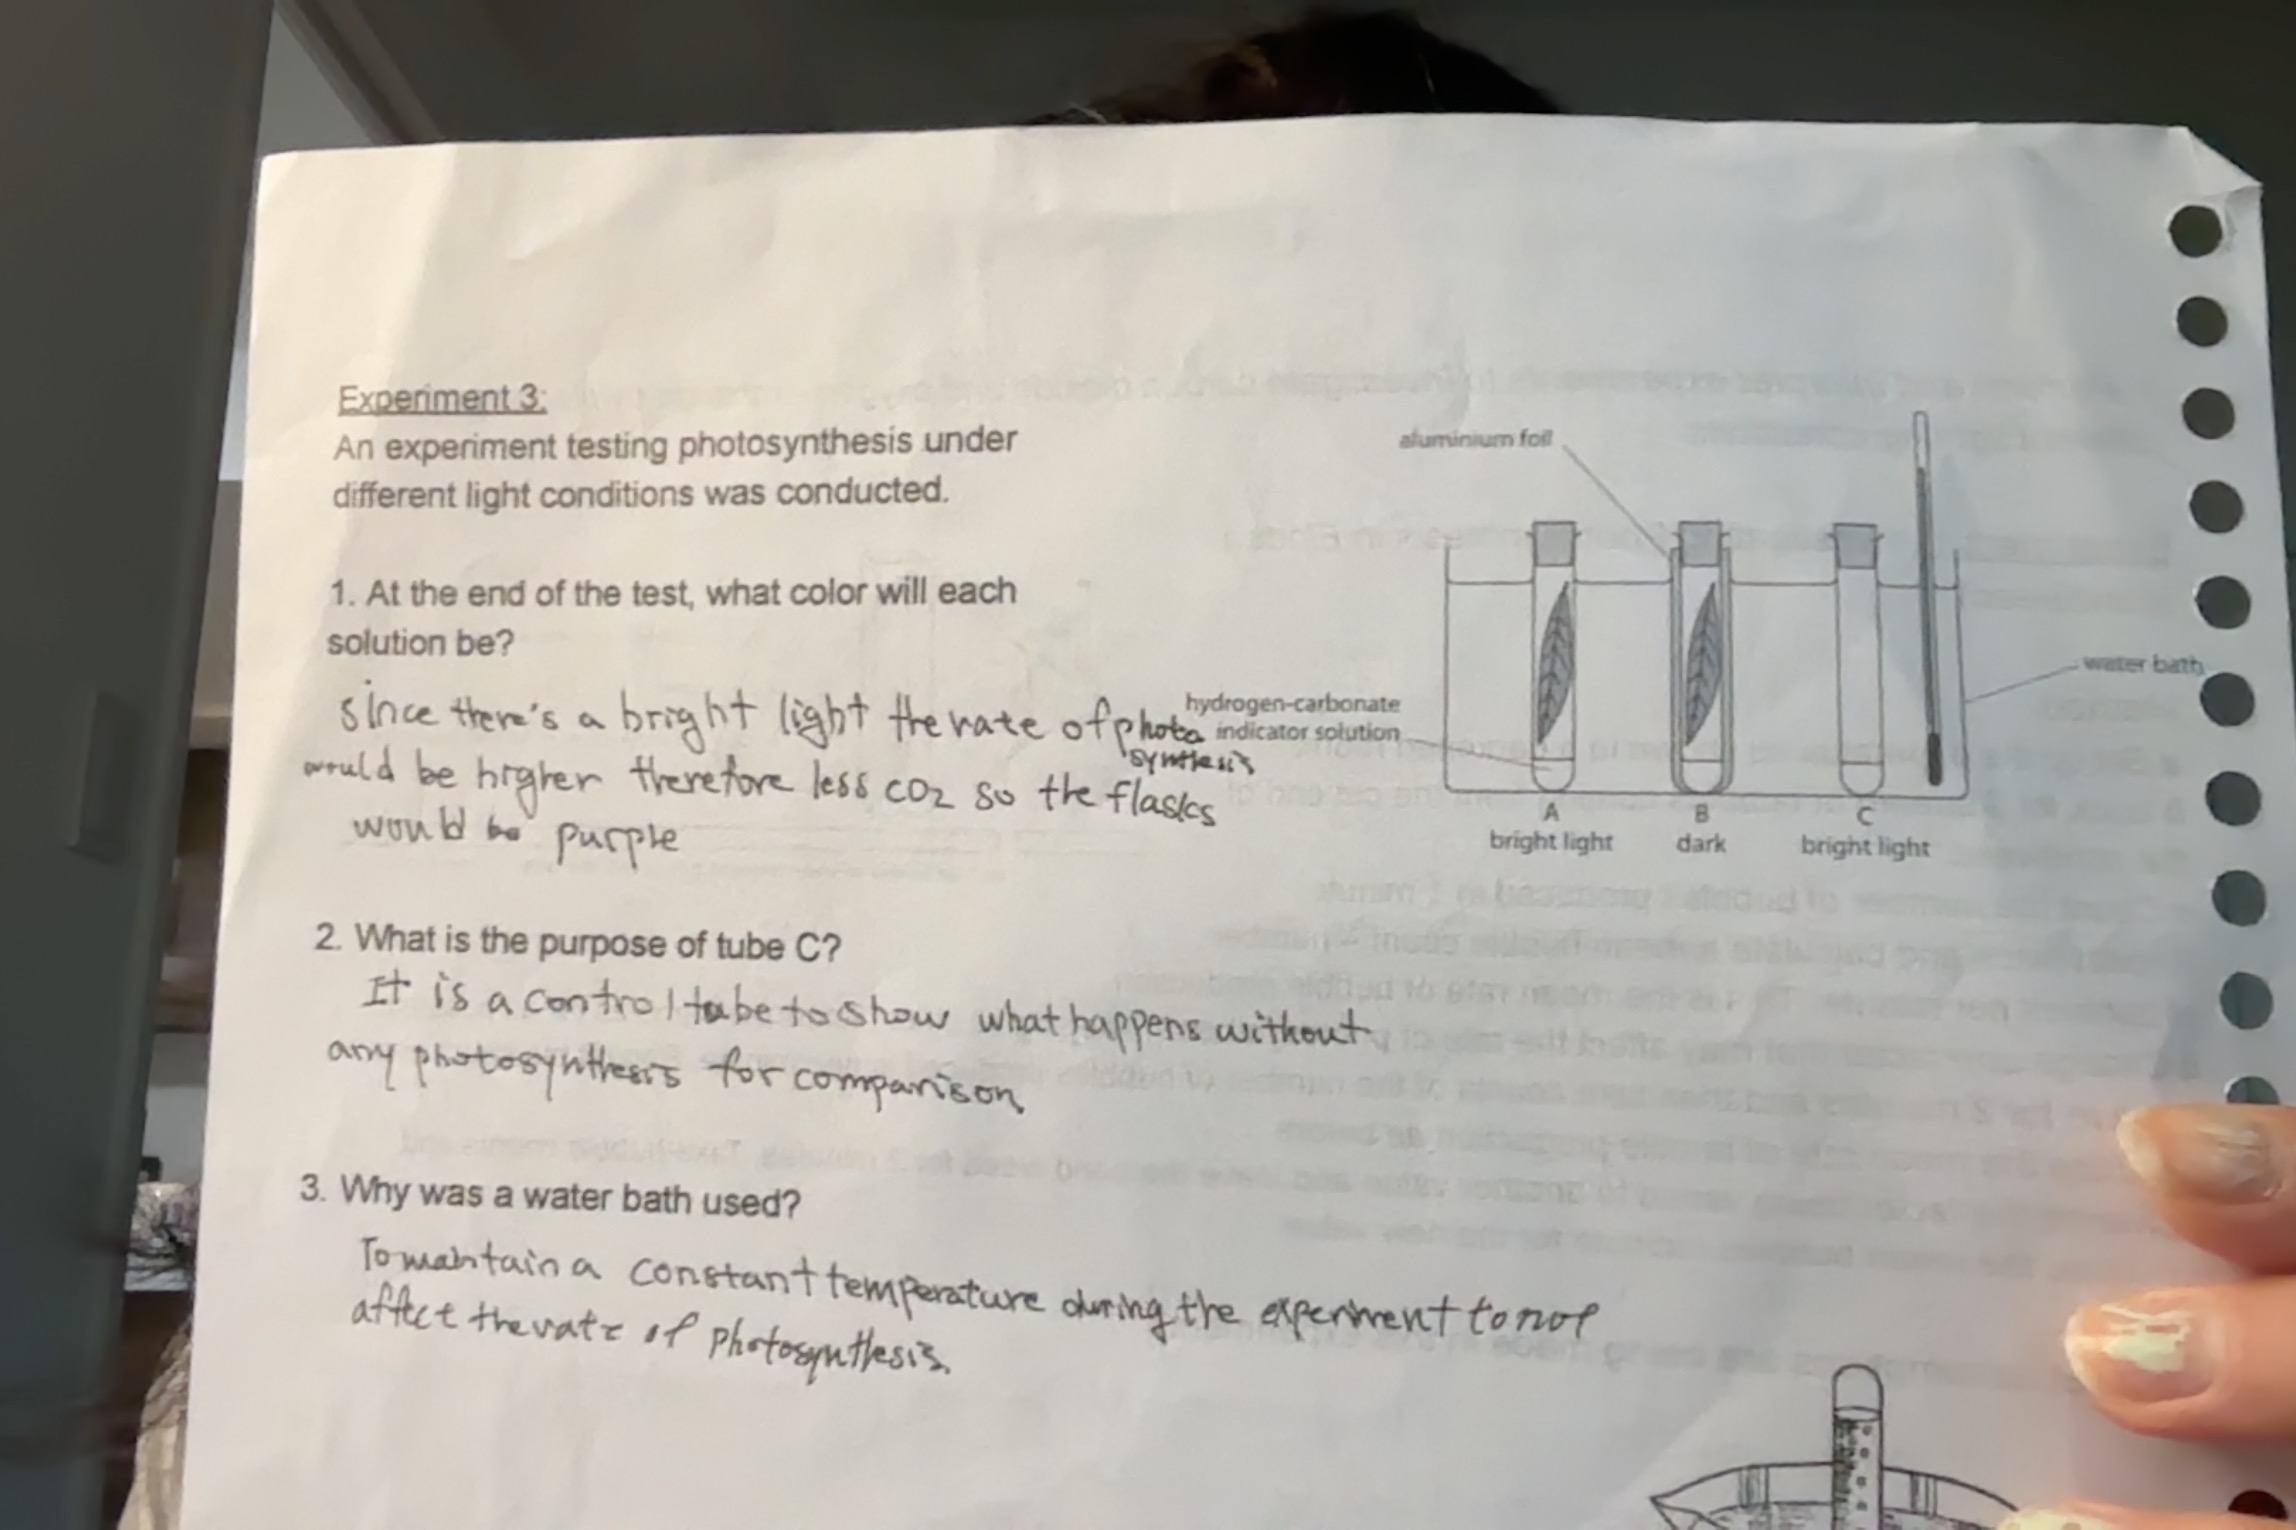 Experiment 3:
An experiment testing photosynthesis under
different light conditions was conducted.
aluminium foil
1. At the end of the test, what color will each
solution be?
since there's a bright light the rate of photo
synthesis
would be higher therefore less CO2 so the flasks
would be purple
hydrogen-carbonate
indicator solution
water bath
A
bright light
B
dark
C
bright light
2. What is the purpose of tube C?
It is a control tube to show what happens without
any photosynthesis for comparison
3. Why was a water bath used?
To maintain a constant temperature during the experiment to not
affect the rate of photosynthesis.